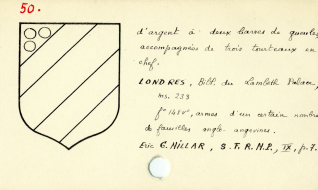 50.
d'argent à deux barres de gueules
accompagnées de trois tourteaux en
chef.
LONDRES, Bibl. du Lambeth Palace,
ms. 233
f° 145 v°, armes d'un certain nombre
de familles anglo angevines.
Eric G. MILLAR, S.F.R.M.P., IX, p. 7.